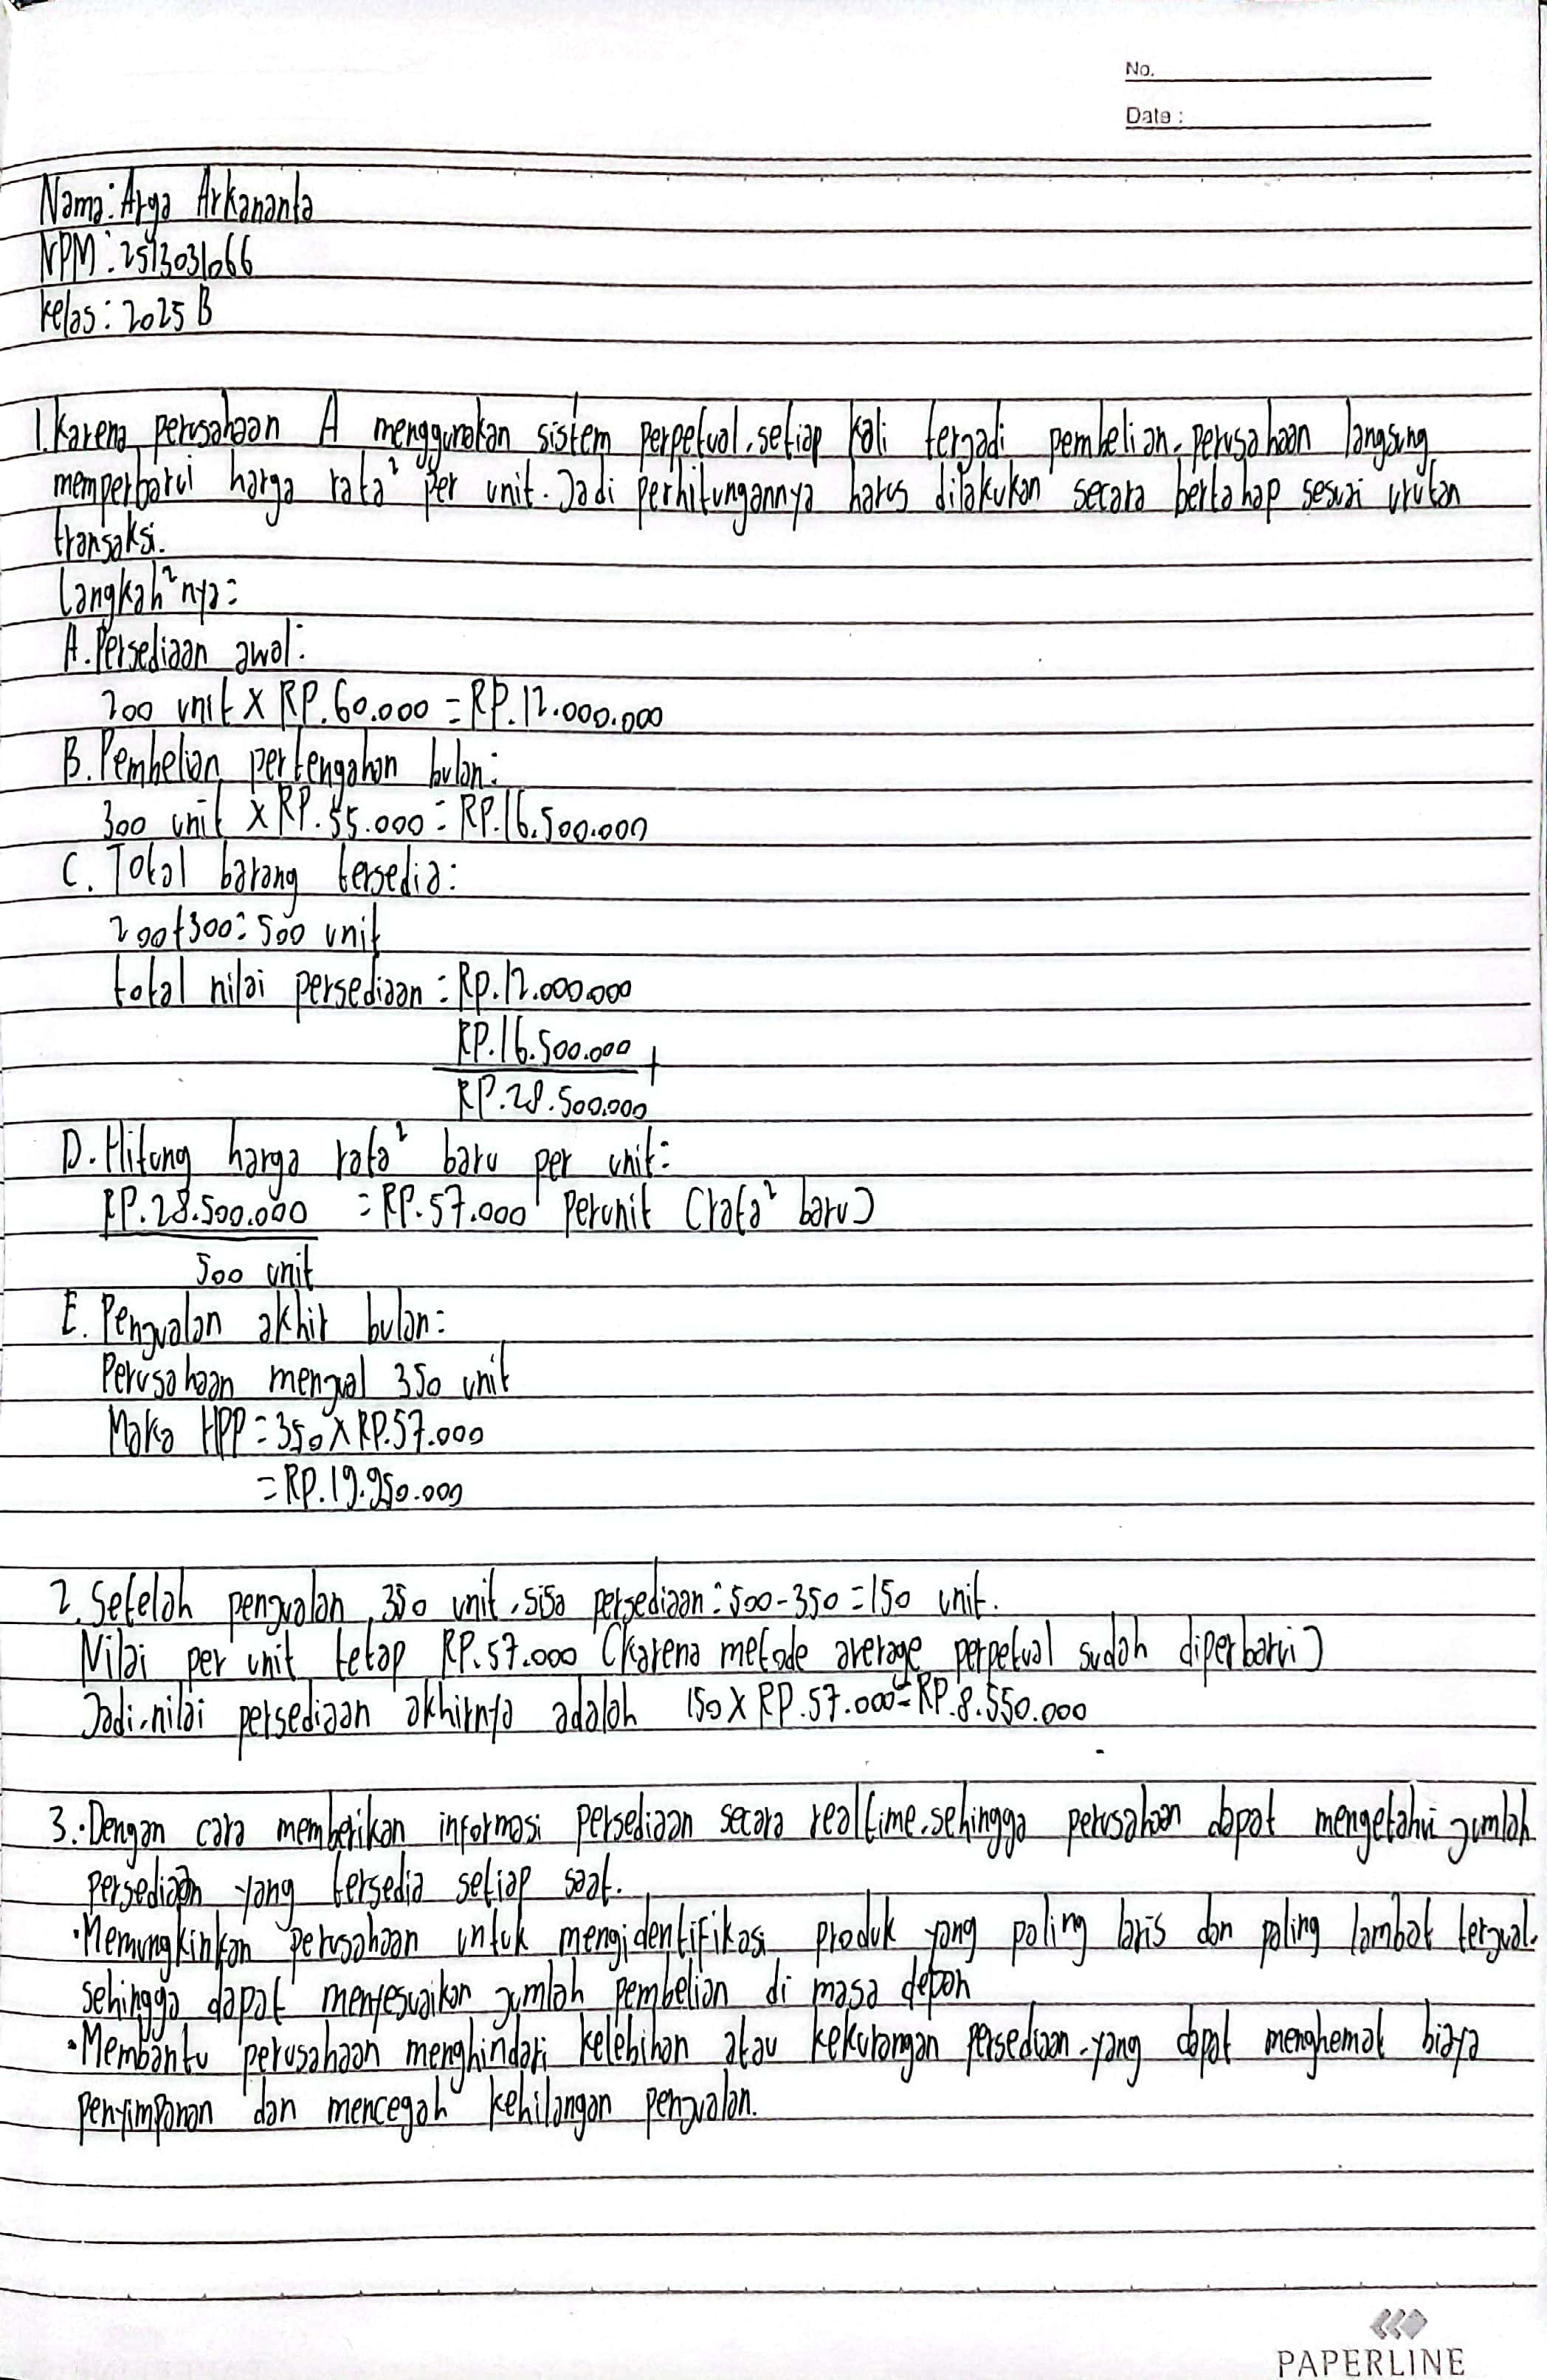 No.
Date :
Nama: Arga Arkananta
NPM: 2513031066
Kelas: 2025 B
1. Karena perusahaan A menggunakan sistem perpetual, setiap kali terjadi pembelian, perusahaan langsung
memperbarui harga rata² per unit. Jadi perhitungannya harus dilakukan secara bertahap sesuai urutan
transaksi.
Langkah²nya:
A. Persediaan awal:
200 unit X RP.60.000 = RP.12.000.000
B. Pembelian pertengahan bulan:
300 unit X RP.55.000 = RP.16.500.000
C. Total barang tersedia:
200+300= 500 unit
total nilai persediaan = Rp.12.000.000
RP.16.500.000 +
RP.28.500.000
D. Hitung harga rata² baru per unit:
RP.28.500.000 = RP.57.000 Perunit (rata² baru)
500 unit
E. Penjualan akhir bulan:
Perusahaan menjual 350 unit
Maka HPP = 350 X RP.57.000
= RP.19.950.000
2. Setelah penjualan 350 unit, sisa persediaan: 500-350 = 150 unit.
Nilai per unit tetap RP.57.000 (karena metode average perpetual sudah diperbarui)
Jadi, nilai persediaan akhirnya adalah 150 X RP.57.000 = RP.8.550.000
3. • Dengan cara memberikan informasi persediaan secara realtime, sehingga perusahaan dapat mengetahui jumlah
persediaan yang tersedia setiap saat.
• Memungkinkan perusahaan untuk mengidentifikasi produk yang paling laris dan paling lambat terjual,
sehingga dapat menyesuaikan jumlah pembelian di masa depan
• Membantu perusahaan menghindari kelebihan atau kekurangan persediaan, yang dapat menghemat biaya
penyimpanan dan mencegah kehilangan penjualan.
PAPERLINE